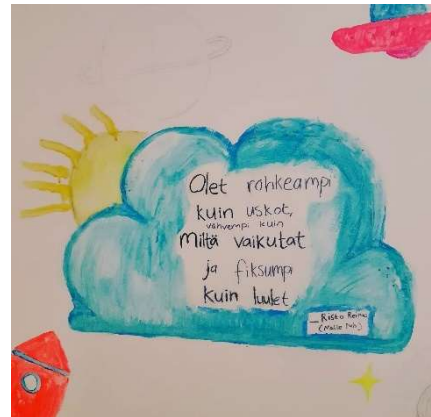 Olet rohkeampi
kuin uskot,
vahvempi kuin
Miltä vaikutat
ja fiksumpi
kuin luulet
— Risto Reimas
(Nalle Puh)